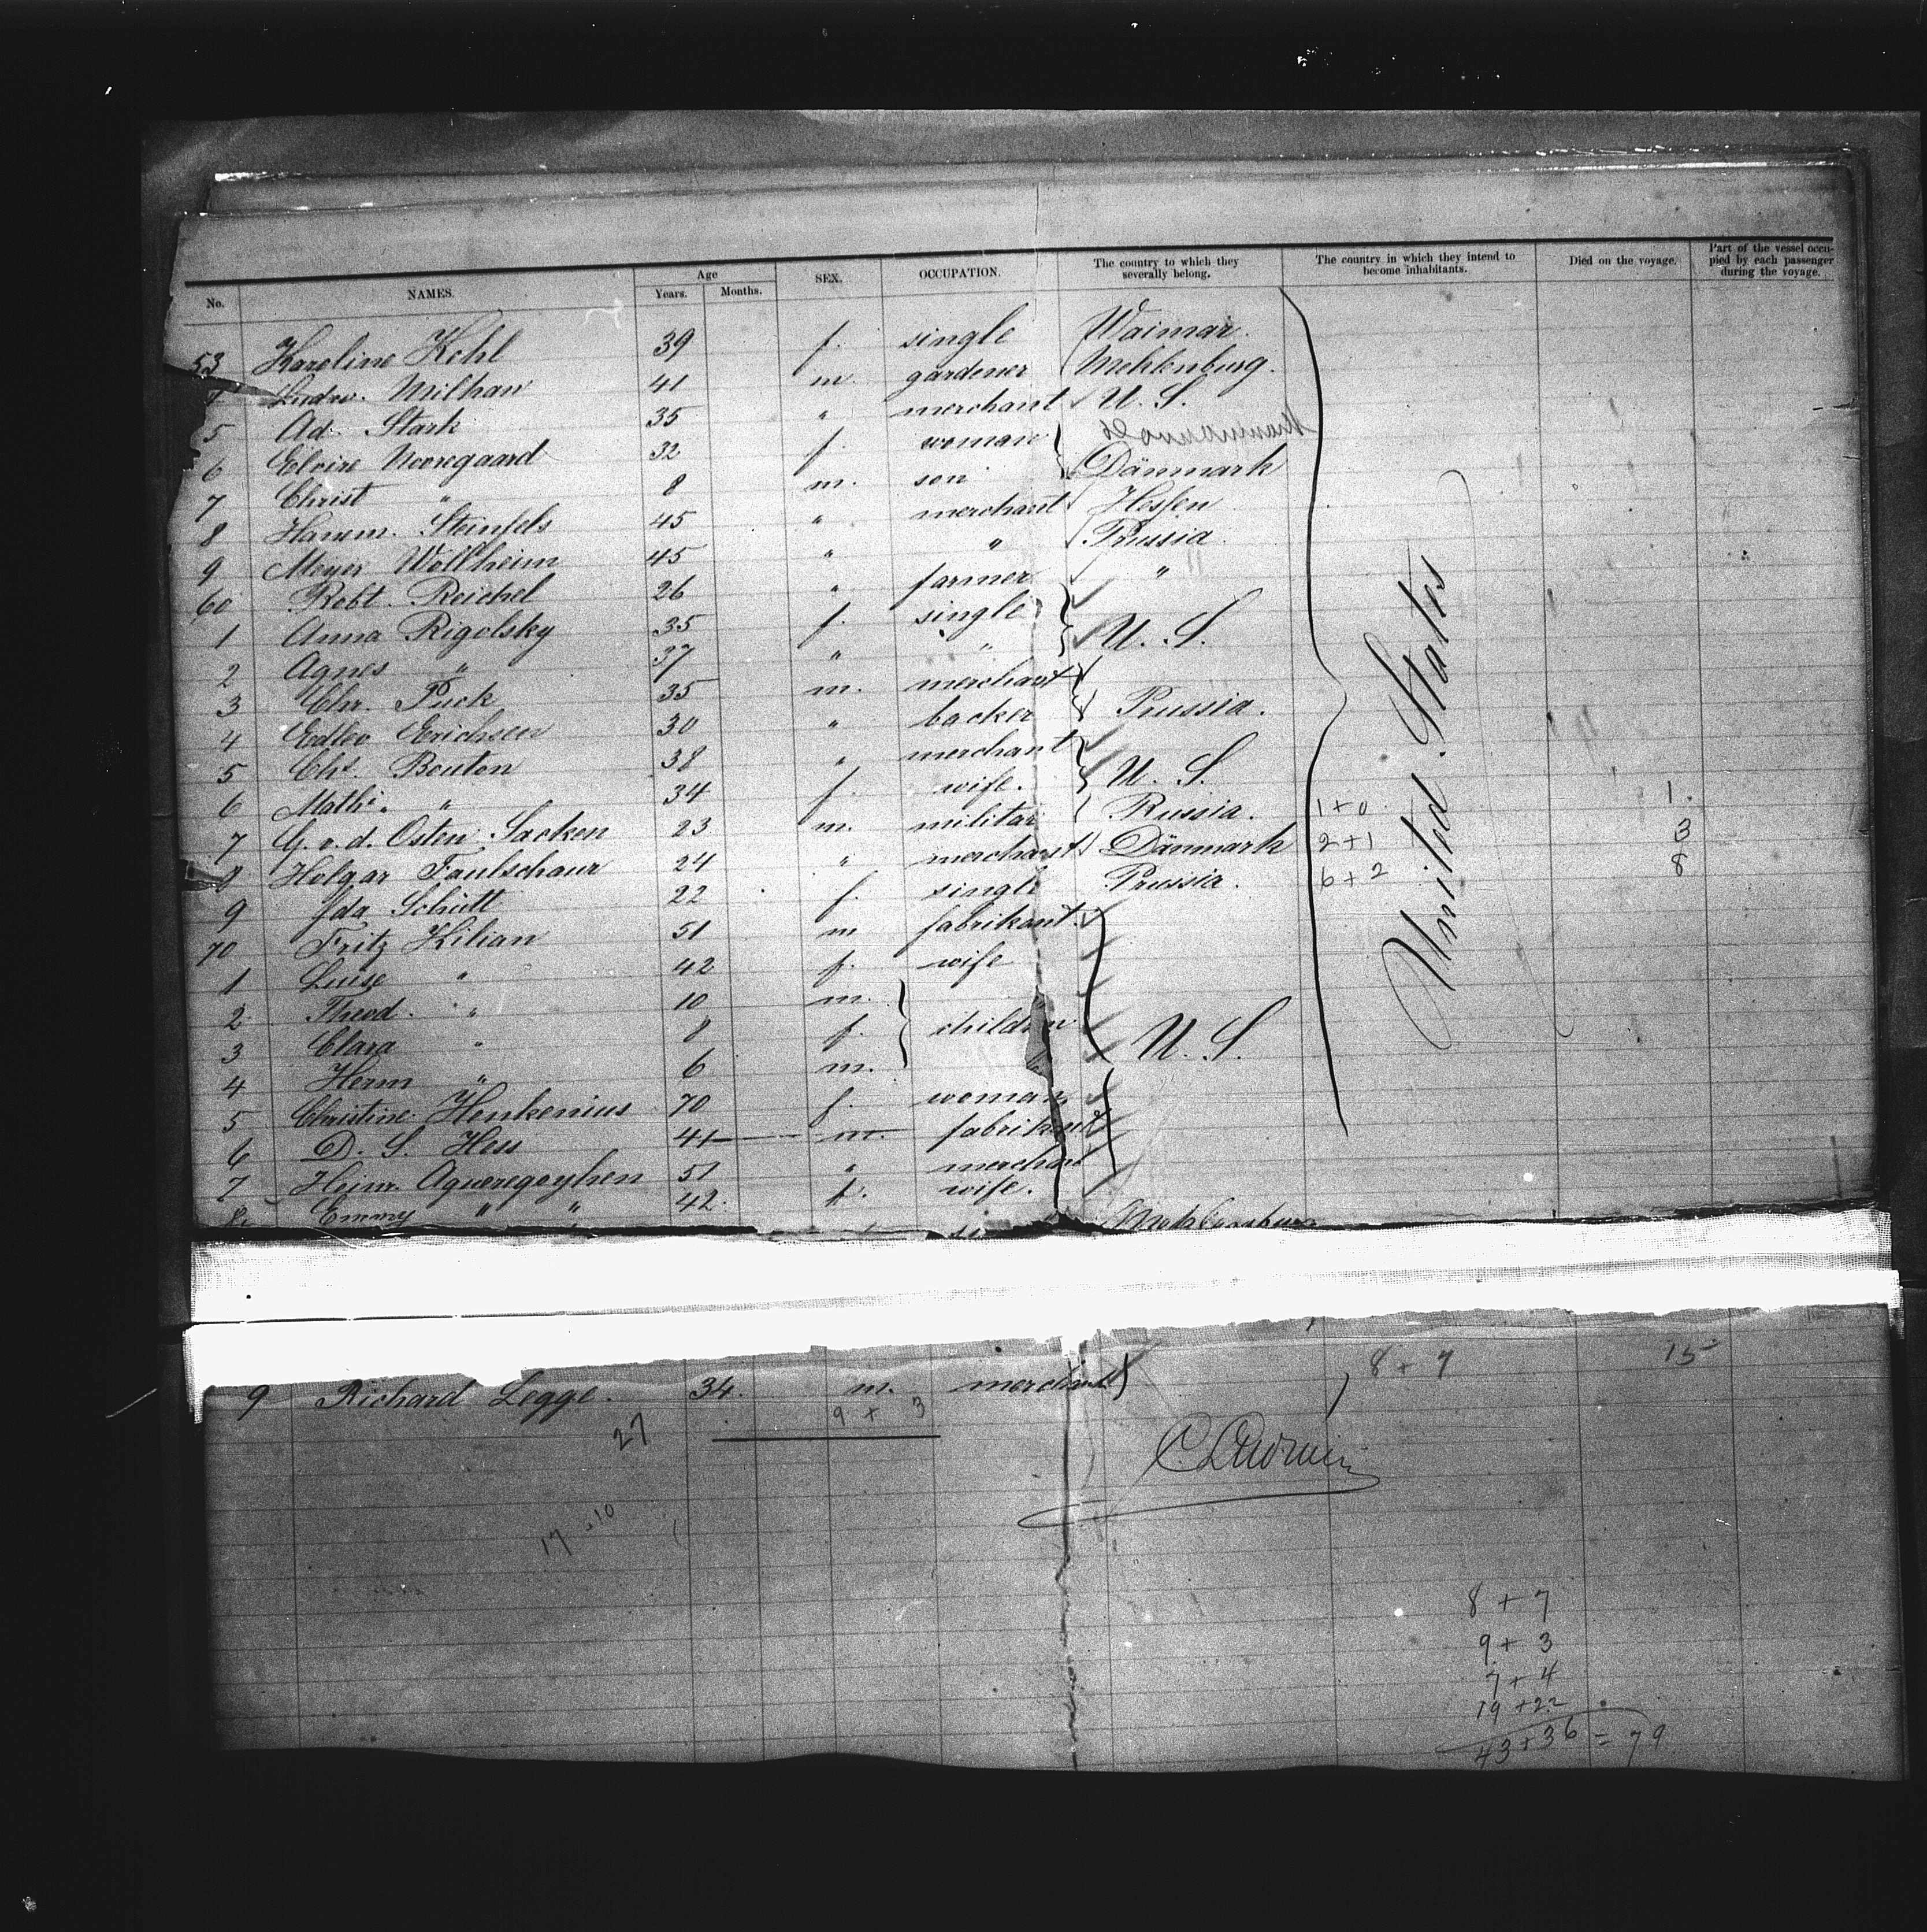 No. NAMES. Age Years. Months. SEX. OCCUPATION. The country to which they severally belong. The country in which they intend to become inhabitants. Died on the voyage. Part of the vessel occupied by each passenger during the voyage.
53 Karoline Kehl 39 f. single Waimar.
Ludw. Milhan 41 m. gardener Mehklenburg.
5 Ad. Stark 35 " merchant U. S.
6 Elvire Nooregaard 32 f. woman
7 Christ " 8 m. son Dänmark
8 Hamm. Steinfels 45 " merchant Hessen
9 Meyer Wollheim 45 " " Prussia.
60 Robt. Reichel 26 " farmer "
1 Anna Rigolsky 35 f. single U. S.
2 Agnes " 37 " "
3 Chr. Puck 35 m. merchant
4 Edlev Erichsen 30 " backer Prussia.
5 Chs. Bouton 38 " merchant
6 Math. " 34 f. wife. U. S.
7 G. v. d. Osten Sacken 23 m. militar Russia. 1+0 1.
8 Holgar Faulschaur 24 " merchant Dänmark 2+1 3
9 Ida Schütt 22 f. single Prussia. 6+2 8
70 Fritz Kilian 51 m fabrikant.
1 Luise " 42 f. wife
2 Theod. " 10 m.
3 Clara " 8 f. children U. S.
4 Herm " 6 m.
5 Christine Henkenius 70 f. woman
6 D. S. Hess 41 m. fabrikant
7 Heinr. Agueregoyhen 51 " merchant
8 Emmy " " 42. f. wife.
United States
9 Richard Legge. 34. m. merchant 8+7 15
27 9 + 3
17 10
8 + 7
9 + 3
7 + 4
19 + 22
43 + 36 = 79